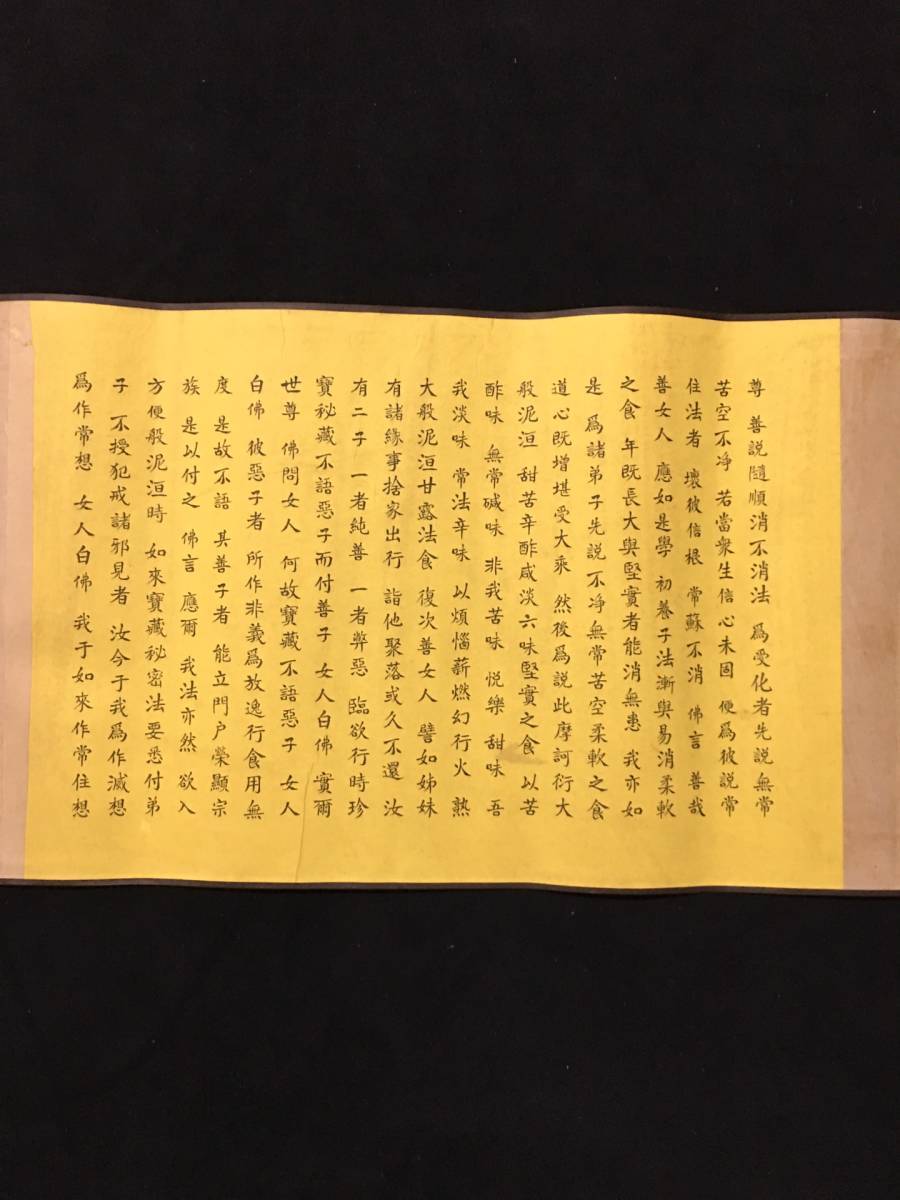 尊 善説隨順消不消法 爲受化者先説無常
苦空不净 若當衆生信心未固 便爲彼説常
住法者 壞彼信根 常蘇不消 佛言 善哉
善女人 應如是學 初養子法漸與易消柔軟
之食 年既長大與堅實者能消無患 我亦如
是 爲諸弟子先説不净無常苦空柔軟之食
道心既增堪受大乘 然後爲説此摩訶衍大
般泥洹 甜苦辛酢咸淡六味堅實之食 以苦
酢味 無常碱味 非我苦味 悦樂 甜味 吾
我淡味 常法辛味 以煩惱薪燃幻行火 熟
大般泥洹甘露法食 復次善女人 譬如姊妹
有諸緣事捨家出行 詣他聚落或久不還 汝
有二子 一者純善 一者弊惡 臨欲行時珍
寶秘藏不語惡子而付善子 女人白佛 實爾
世尊 佛問女人 何故寶藏不語惡子 女人
白佛 彼惡子者 所作非義爲放逸行食用無
度 是故不語 其善子者 能立門户榮顯宗
族 是以付之 佛言 應爾 我法亦然 欲入
方便般泥洹時 如來寶藏秘密法要悉付弟
子 不授犯戒諸邪見者 汝今于我爲作滅想
爲作常想 女人白佛 我于如來作常住想